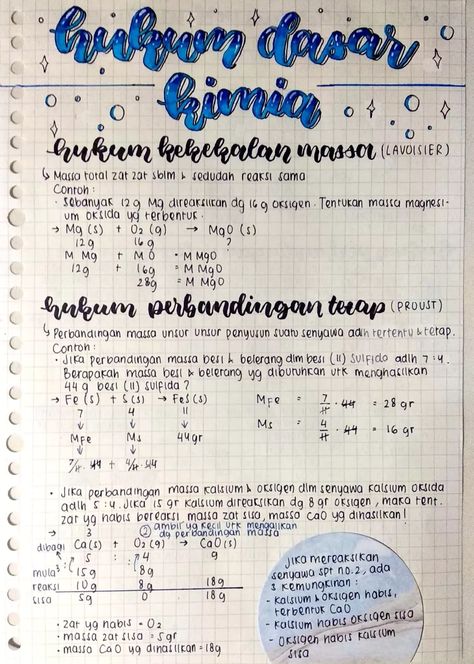 hukum dasar
kimia
hukum kekekalan massa (LAVOISIER)
↳ Massa total zat zat sblm & sedudah reaksi sama
Contoh :
• Sebanyak 12 g Mg direaksikan dg 16 g oksigen. Tentukan massa magnesi-
um oksida yg terbentuk.
→ Mg (s) + O2 (g) → MgO (s)
12 g 16 g ?
M Mg + M O = M MgO
12 g + 16 g = M MgO
28 g = M MgO
hukum perbandingan tetap (PROUST)
↳ Perbandingan massa unsur unsur penyusun suatu senyawa adlh tertentu & tetap.
Contoh :
• Jika perbandingan massa besi & belerang dlm besi (II) Sulfida adlh 7 : 4.
Berapakah massa besi & belerang yg dibutuhkan utk menghasilkan
44 g besi (II) sulfida ?
→ Fe (s) + S (s) → FeS (s)
7 4 11
↓ ↓ ↓
MFe Ms 44 gr
↓ ↓
7/11 . 44 + 4/11 . 44
MFe = 7/11 . 44 = 28 gr
Ms = 4/11 . 44 = 16 gr
• Jika perbandingan massa kalsium & oksigen dlm senyawa kalsium oksida
adlh 5 : 4. Jika 15 gr kalsium direaksikan dg 8 gr oksigen, maka tent.
zat yg habis bereaksi massa zat sisa, massa CaO yg dihasilkan !
→ 3 ② ambil yg kecil utk mengalikan
dg perbandingan massa
dibagi Ca (s) + O2 (g) → CaO (s)
5 : 4 9
mula² 15 g 8 g
reaksi 10 g 8 g 18 g
sisa 5 g 0 18 g
• zat yg habis = O2
• massa zat sisa = 5 gr
• massa CaO yg dihasilkan = 18 g
Jika mereaksikan
senyawa spt no. 2, ada
3 kemungkinan :
- kalsium & oksigen habis,
terbentuk CaO
- kalsium habis oksigen sisa
- oksigen habis kalsium
sisa